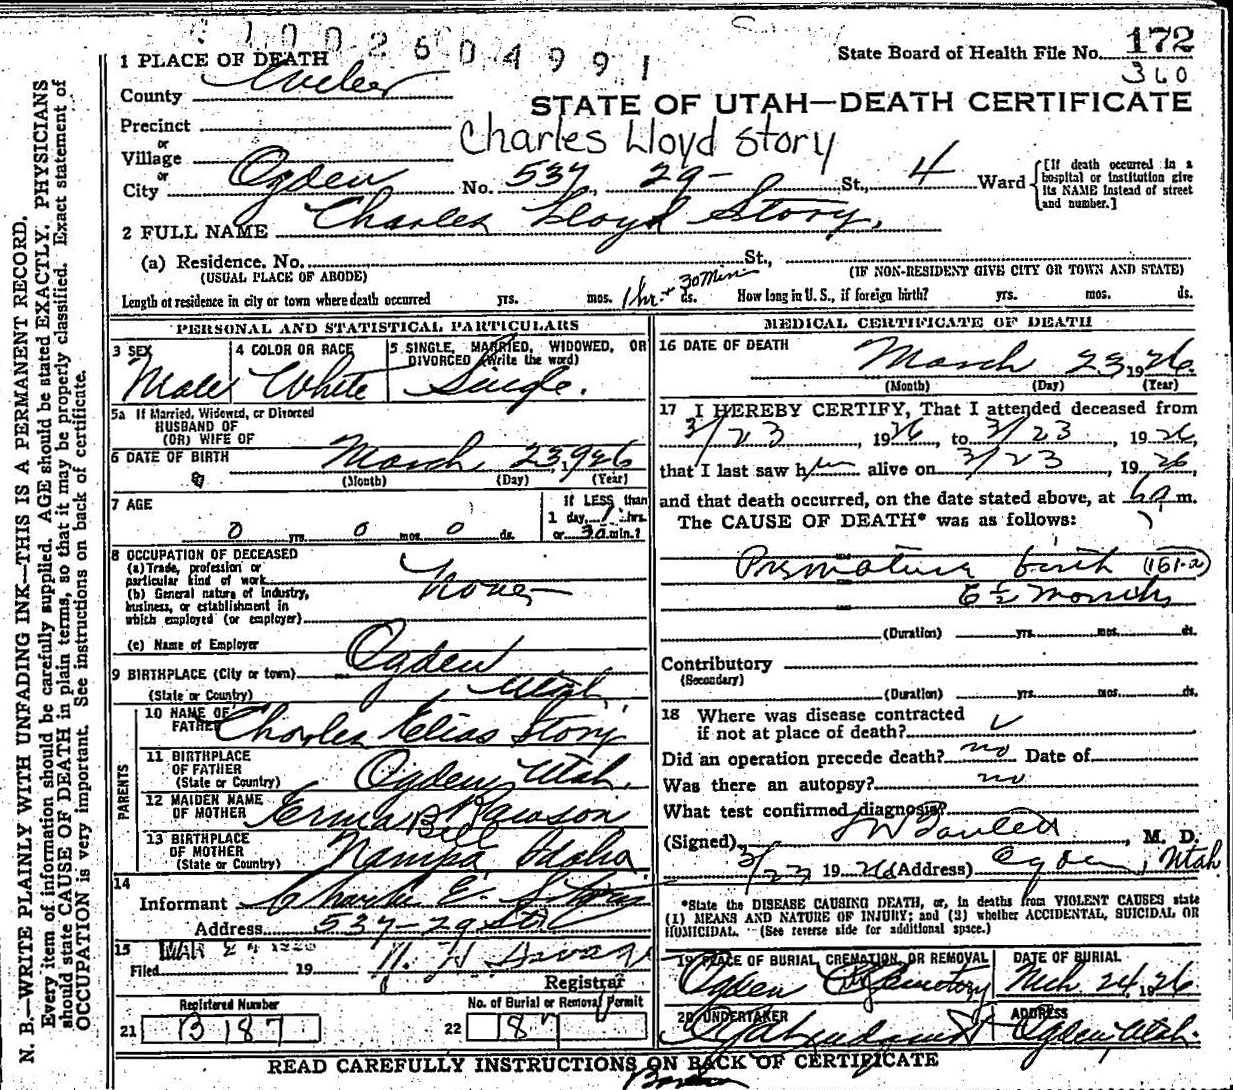 1002604991
State Board of Health File No. 172
360
1 PLACE OF DEATH
County Weber
STATE OF UTAH—DEATH CERTIFICATE
Precinct
or
Village
Charles Lloyd Story
or
City Ogden No. 537, 29- St., 4 Ward
[If death occurred in a hospital or institution give its NAME instead of street and number.]
2 FULL NAME Charles Lloyd Story,
(a) Residence. No. St.,
(USUAL PLACE OF ABODE) (IF NON-RESIDENT GIVE CITY OR TOWN AND STATE)
Length of residence in city or town where death occurred yrs. mos. 1 hr + 30 Min ds. How long in U. S., if foreign birth? yrs. mos. ds.
PERSONAL AND STATISTICAL PARTICULARS
3 SEX
Male
4 COLOR OR RACE
White
5 SINGLE, MARRIED, WIDOWED, OR DIVORCED (Write the word)
Single.
5a If Married, Widowed, or Divorced
HUSBAND OF
(OR) WIFE OF
6 DATE OF BIRTH March 23, 1926
(Month) (Day) (Year)
7 AGE
0 yrs. 0 mos. 0 ds.
If LESS than
1 day, 1 hrs.
or 30 min.?
8 OCCUPATION OF DECEASED
(a) Trade, profession or
particular kind of work
None
(b) General nature of industry,
business, or establishment in
which employed (or employer)
(c) Name of Employer
9 BIRTHPLACE (City or town) Ogden
(State or Country) Utah
PARENTS
10 NAME OF
FATHER Charles Elias Story
11 BIRTHPLACE
OF FATHER
(State or Country) Ogden, Utah.
12 MAIDEN NAME
OF MOTHER Erma Bell Lawson
13 BIRTHPLACE
OF MOTHER
(State or Country) Nampa, Idaho
14
Informant Charles E. Story
Address 537-29 St
15
Filed MAR 24 1926 19
Registrar
Registered Number
21 B 187
No. of Burial or Removal Permit
22 187
MEDICAL CERTIFICATE OF DEATH
16 DATE OF DEATH
March 23, 1926.
(Month) (Day) (Year)
17 I HEREBY CERTIFY, That I attended deceased from
3/23, 1926, to 3/23, 1926,
that I last saw him alive on 3/23, 1926
and that death occurred, on the date stated above, at 6 a m.
The CAUSE OF DEATH* was as follows:
Premature birth (161-a)
6 ½ Months
(Duration) yrs. mos. ds.
Contributory
(Secondary)
(Duration) yrs. mos. ds.
18 Where was disease contracted
if not at place of death?
Did an operation precede death? no Date of
Was there an autopsy? no
What test confirmed diagnosis?
(Signed), M. D.
3/23 1926 (Address) Ogden, Utah
*State the DISEASE CAUSING DEATH, or, in deaths from VIOLENT CAUSES state
(1) MEANS AND NATURE OF INJURY; and (2) whether ACCIDENTAL, SUICIDAL OR
HOMICIDAL. (See reverse side for additional space.)
19 PLACE OF BURIAL, CREMATION, OR REMOVAL
Ogden City Cemetory
DATE OF BURIAL
Mch 24, 1926
20 UNDERTAKER
ADDRESS
Ogden, Utah.
READ CAREFULLY INSTRUCTIONS ON BACK OF CERTIFICATE
N. B.—WRITE PLAINLY WITH UNFADING INK—THIS IS A PERMANENT RECORD.
Every item of information should be carefully supplied. AGE should be stated EXACTLY. PHYSICIANS
should state CAUSE OF DEATH in plain terms, so that it may be properly classified. Exact statement of
OCCUPATION is very important. See instructions on back of certificate.